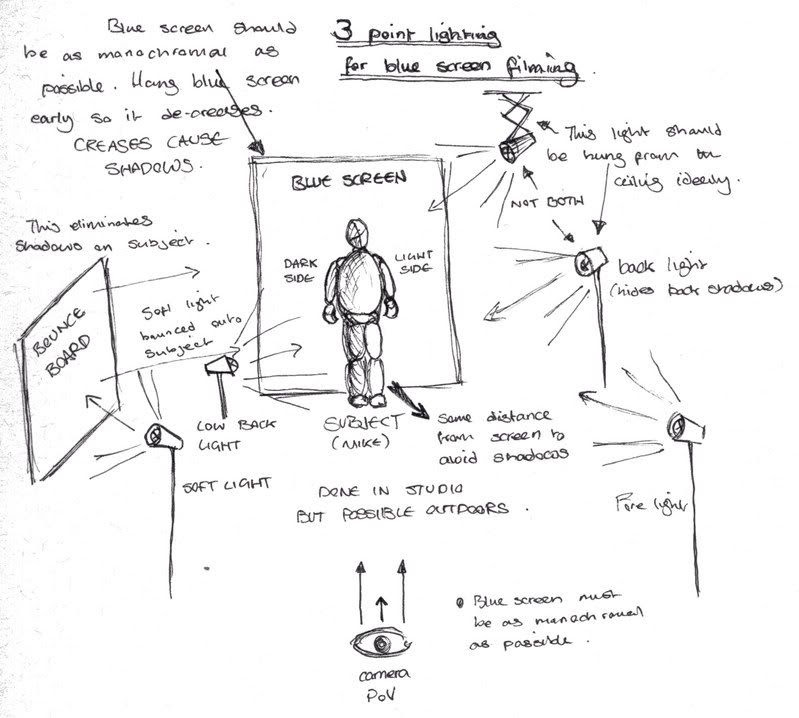 Blue screen should
be as monochromal as
possible. Hang blue screen
early so it de-creases.
CREASES CAUSE
SHADOWS.
3 point lighting
for blue screen filming.
This light should
be hung from the
ceiling ideally.
NOT BOTH
BLUE SCREEN
DARK
SIDE
LIGHT
SIDE
back light
(hides back shadows)
This eliminates
shadows on subject.
BOUNCE
BOARD
Soft light
bounced onto
subject
LOW BACK
LIGHT
SOFT LIGHT
SUBJECT
(MIKE)
Some distance
from screen to
avoid shadows
Fore light
DONE IN STUDIO
BUT POSSIBLE OUTDOORS.
Blue screen must
be as monochromal
as possible.
camera
PoV